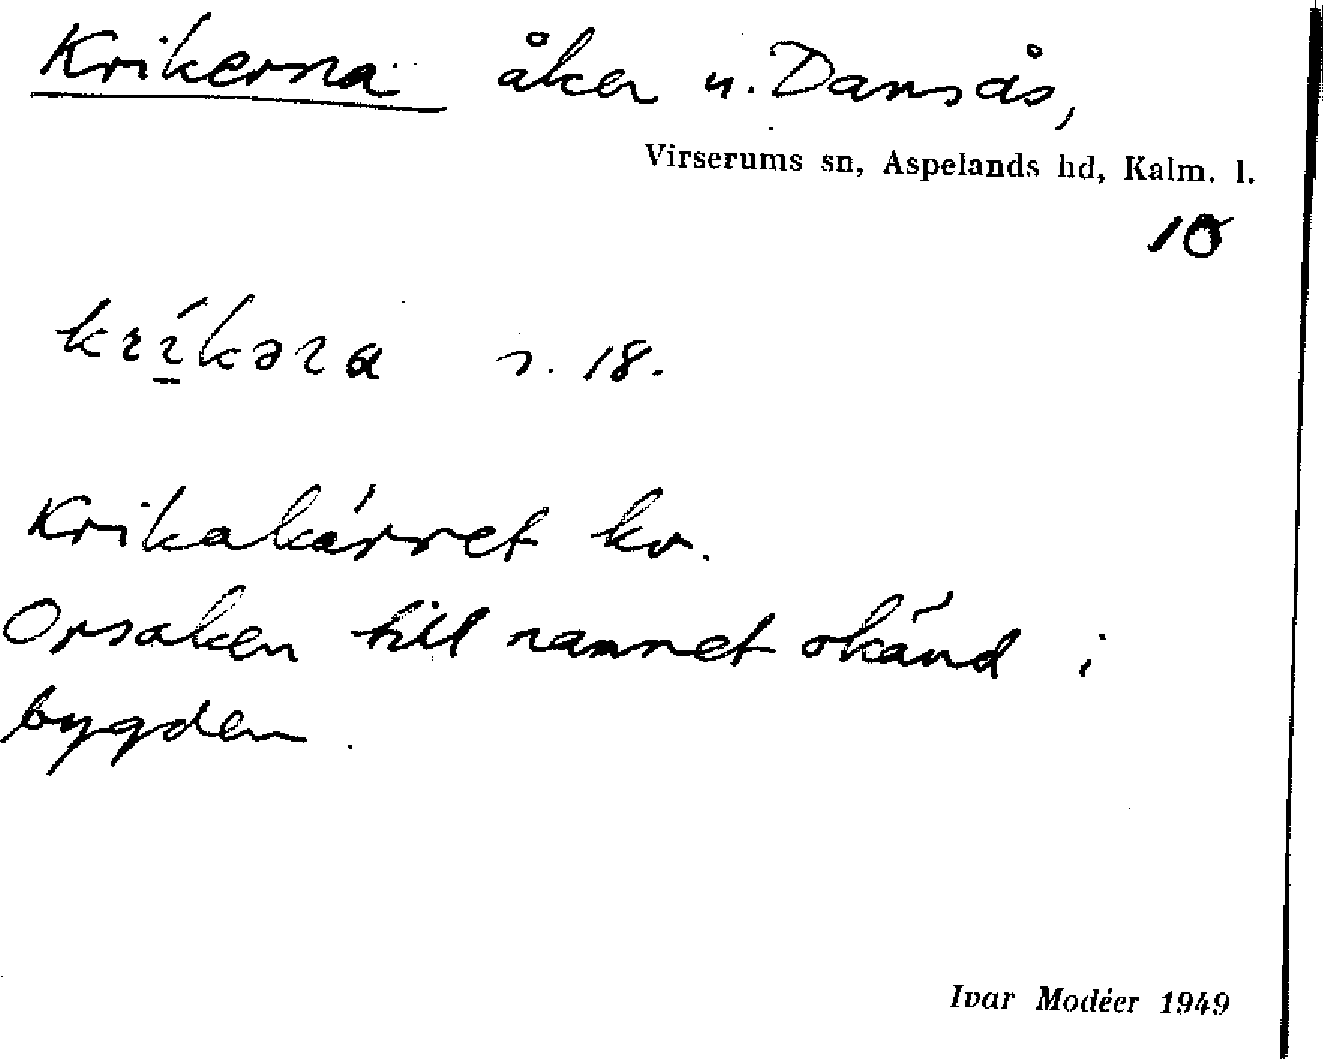 Krikerna åker u. Damsås,
Virserums sn, Aspelands hd, Kalm. l.
10
kríkəra s. 18.
Krikakärret kv.
Orsaken till namnet okänd i
bygden.
Ivar Modéer 1949